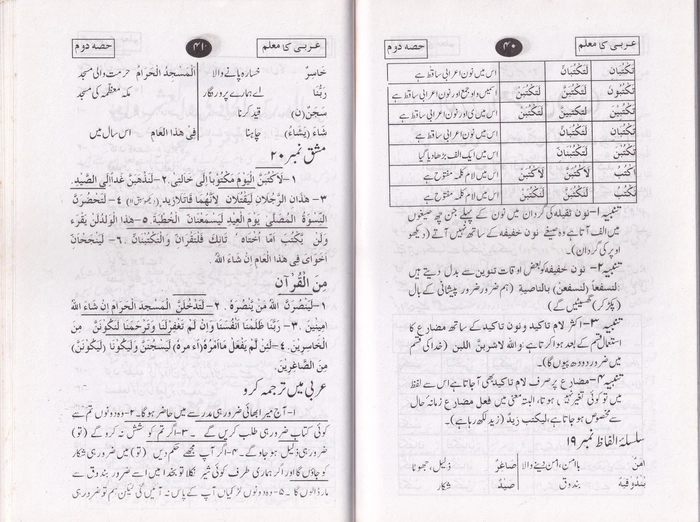 عربی کا معلم ۴۰ حصہ دوم
تَكْتُبَانِ لَتَكْتُبَانِّ اس میں نون اعرابی ساقط ہے
تَكْتُبُونَ لَتَكْتُبُنَّ لَتَكْتُبُنْ اسمیں واو جمع اور نون اعرابی ساقط ہے
تَكْتُبِيْنَ لَتَكْتُبِنَّ لَتَكْتُبِنْ اس میں ی اور نون اعرابی ساقط ہے
تَكْتُبَانِ لَتَكْتُبَانِّ اس میں نون اعرابی ساقط ہے
تَكْتُبْنَ لَتَكْتُبْنَانِّ اس میں ایک الف بڑھا دیا گیا
اَكْتُبُ لَاَكْتُبَنَّ لَاَكْتُبَنْ اس میں لام کلمہ مفتوح ہے
نَكْتُبُ لَنَكْتُبَنَّ لَنَكْتُبَنْ اس میں لام کلمہ مفتوح ہے
تنبیہ ۱- نون ثقیلہ کی گردان میں نون کے پہلے جن چھ صیغوں
میں الف آتا ہے وہ صیغے نون خفیفہ کے ساتھ نہیں آتے (دیکھو
اوپر کی گردان)۔
تنبیہ ۲- نون خفیفہ کو بعض اوقات تنوین سے بدل دیتے ہیں
لنسفعاً (لنسفعن) بالناصية (ہم ضرور ضرور پیشانی کے بال
(پکڑ کر) گھسیٹیں گے)
تنبیہ ۳- اکثر لام تاکید و نون تاکید کے ساتھ مضارع کا
استعمال قسم کے بعد ہوا کرتا ہے واللہ لاشربن اللبن (خدا کی قسم
میں ضرور دودھ پیوں گا)۔
تنبیہ ۴- مضارع پر صرف لام تاکید بھی آجاتا ہے اس سے لفظ
میں تو کوئی تغیر نہیں ہوتا، البتہ معنی میں فعل مضارع زمانہ حال
سے مخصوص ہو جاتا ہے، لیکتب زید (زید لکھ رہا ہے)۔
سلسلۂ الفاظ نمبر ۱۹
اٰمِنٌ با امن، امن دینے والا صَاغِرٌ ذلیل، چھوٹا
بُنْدُوقِيَّةٌ بندوق صَيْدٌ شکار
عربی کا معلم ۴۱ حصہ دوم
خَاسِرٌ خسارہ پانے والا اَلْمَسْجِدُ الْحَرَامُ حرمت والی مسجد
رَبَّنَا اے ہمارے پروردگار مکہ معظمہ کی مسجد
سَجَنَ (ن) قید کرنا
شَاءَ (يَشَاءُ) چاہنا فِيْ هٰذَا الْعَام اس سال میں
مشق نمبر ۲۰
۱- لَاَكْتُبَنَّ الْيَوْمَ مَكْتُوْبًا اِلٰى خَالَتِيْ ۲- لَنَذْهَبَنَّ غَدًا اِلَى الصَّيْدِ
۳- هٰذَانِ الرَّجُلَانِ لَيُقْتَلَانِّ لِاَنَّهُمَا قَاتَلَا زَيْدٍ ۴- لَتَحْضُرَنَّ
النِّسْوَةُ الْمُصَلّٰى يَوْمَ الْعِيْدِ لِيَسْمَعْنَانِّ الْخُطْبَةَ ۵- هٰذَا الْوَلَدُ لَنْ يَقْرَءَ
وَلَنْ يَكْتُبَ اَمَّا اُخْتَاهُ تَانِكَ فَلَتَقْرَانِّ وَلَتَكْتُبَانِّ ۶- لَيَنْجَحَانِّ
اَخَوَايَ فِيْ هٰذَا الْعَامِ اِنْ شَاءَ اللّٰهُ
مِنَ الْقُرْآنِ
۱- لَيَنْصُرَنَّ اللّٰهُ مَنْ يَّنْصُرُهُ ۲- لَتَدْخُلُنَّ الْمَسْجِدَ الْحَرَامَ اِنْ شَاءَ اللّٰهُ
اٰمِنِيْنَ ۳- رَبَّنَا ظَلَمْنَا اَنْفُسَنَا وَاِنْ لَمْ تَغْفِرْلَنَا وَتَرْحَمْنَا لَنَكُوْنَنَّ مِنَ
الْخَاسِرِيْنَ ۴- لَئِنْ لَمْ يَفْعَلْ مَا اٰمُرُهُ (اٰمره) لَيُسْجَنَنَّ وَلَيَكُوْنًا (لَيَكُوْنَنْ)
مِنَ الصَّاغِرِيْنَ
عربی میں ترجمہ کرو
۱- آج میرا بھائی ضرور ہی مدرسے میں حاضر ہوگا۔ ۲- وہ دونوں تم سے
کوئی کتاب ضرور ہی طلب کریں گے۔ ۳- اگر تم کوشش نہ کرو گے (تو)
ضرور ہی ذلیل ہو جاؤ گے۔ ۴- اگر آپ مجھے حکم دیں (تو) میں ضرور ہی شکار
کو جاؤں گا اور اگر ہماری طرف کوئی شیر نکلا تو بخدا میں اسے ضرور بندوق سے
مار ڈالوں گا۔ ۵- وہ دونوں لڑکیاں آپ کے پاس نہ آئیں گی لیکن ہم تو ضرور ہی